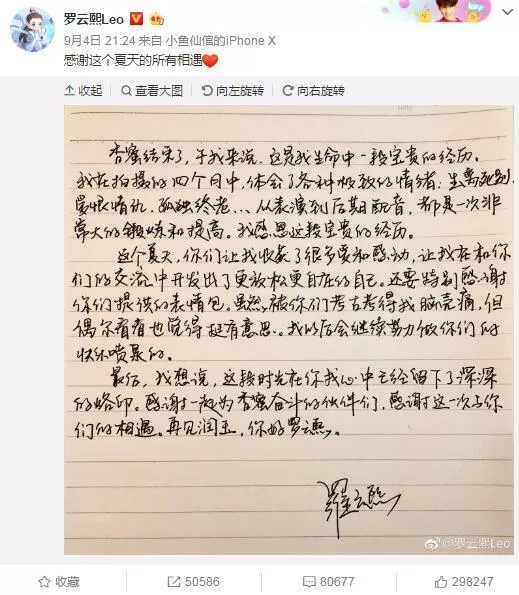 罗云熙Leo
9月4日 21:24 来自 小鱼仙倌的iPhone X
感谢这个夏天的所有相遇❤
收起 查看大图 向左旋转 向右旋转
香蜜结束了,于我来说,这是我生命中一段宝贵的经历。
我在拍摄的四个月中,体会了各种极致的情绪,生离死别,
爱恨情仇,孤独终老...从表演到后期配音,都是一次非
常大的锻炼和提高。我感恩这段宝贵的经历。
这个夏天,你们让我收获了很多爱和感动,让我在和你
们的交流中开发出了更放松更自在的自己。还要特别感谢
你们提供的表情包。虽然被你们考古考得我脑壳痛,但
偶尔看看也觉得挺有意思。我以后会继续努力做你们的
快乐喷泉的。
最后,我想说,这段时光在你我心中已经留下了深深
的烙印。感谢一起为香蜜奋斗的伙伴们,感谢这一次与你
们的相遇。再见润玉,你好罗云熙。
羅云熙
@罗云熙Leo
收藏 50586 80677 298247